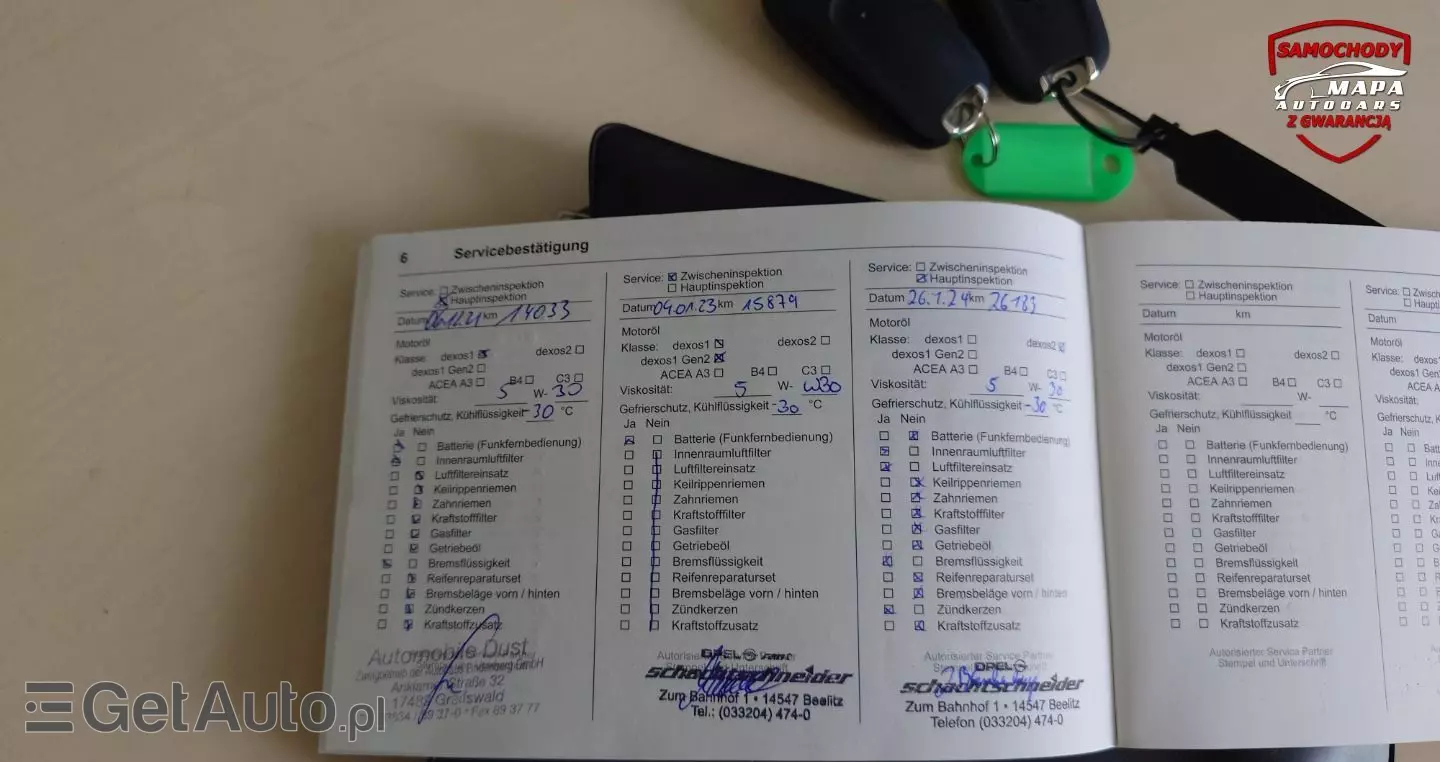 SAMOCHODY
MAPA
AUTOCARS
Z GWARANCJĄ
6 Servicebestätigung
Service: Zwischeninspektion
Hauptinspektion
Datum km 14033
Motoröl
Klasse: dexos1 dexos2
dexos1 Gen2
ACEA A3 B4 C3
Viskosität: 5 W- 30
Gefrierschutz, Kühlflüssigkeit -30 °C
Ja Nein
Batterie (Funkfernbedienung)
Innenraumluftfilter
Luftfiltereinsatz
Keilrippenriemen
Zahnriemen
Kraftstofffilter
Gasfilter
Getriebeöl
Bremsflüssigkeit
Reifenreparaturset
Bremsbeläge vorn / hinten
Zündkerzen
Kraftstoffzusatz
Automobile Dust
Straße 32
Greifswald
Fax 89 37 77
Service: Zwischeninspektion
Hauptinspektion
Datum 04.01.23 km 15879
Motoröl
Klasse: dexos1 dexos2
dexos1 Gen2
ACEA A3 B4 C3
Viskosität: 5 W- W30
Gefrierschutz, Kühlflüssigkeit -30 °C
Ja Nein
Batterie (Funkfernbedienung)
Innenraumluftfilter
Luftfiltereinsatz
Keilrippenriemen
Zahnriemen
Kraftstofffilter
Gasfilter
Getriebeöl
Bremsflüssigkeit
Reifenreparaturset
Bremsbeläge vorn / hinten
Zündkerzen
Kraftstoffzusatz
OPEL
schachtschneider
Zum Bahnhof 1 • 14547 Beelitz
Tel.: (033204) 474-0
Service: Zwischeninspektion
Hauptinspektion
Datum 26.1.24 km 26183
Motoröl
Klasse: dexos1 dexos2
dexos1 Gen2
ACEA A3 B4 C3
Viskosität: 5 W- 30
Gefrierschutz, Kühlflüssigkeit -30 °C
Ja Nein
Batterie (Funkfernbedienung)
Innenraumluftfilter
Luftfiltereinsatz
Keilrippenriemen
Zahnriemen
Kraftstofffilter
Gasfilter
Getriebeöl
Bremsflüssigkeit
Reifenreparaturset
Bremsbeläge vorn / hinten
Zündkerzen
Kraftstoffzusatz
Autorisierter Service Partner
OPEL
schachtschneider
Zum Bahnhof 1 • 14547 Beelitz
Telefon (033204) 474-0
Service: Zwischeninspektion
Hauptinspektion
Datum km
Motoröl
Klasse: dexos1 dexos2
dexos1 Gen2
ACEA A3 B4 C3
Viskosität: W-
Gefrierschutz, Kühlflüssigkeit °C
Ja Nein
Batterie (Funkfernbedienung)
Innenraumluftfilter
Luftfiltereinsatz
Keilrippenriemen
Zahnriemen
Kraftstofffilter
Gasfilter
Getriebeöl
Bremsflüssigkeit
Reifenreparaturset
Bremsbeläge vorn / hinten
Zündkerzen
Kraftstoffzusatz
Autorisierter Service Partner
Stempel und Unterschrift
Service: Zwisch
Haupti
Datum
Motoröl
Klasse: dexos1
dexos1
ACEA
Viskosität:
Gefrierschutz, K
Ja Nein
GetAuto.pl